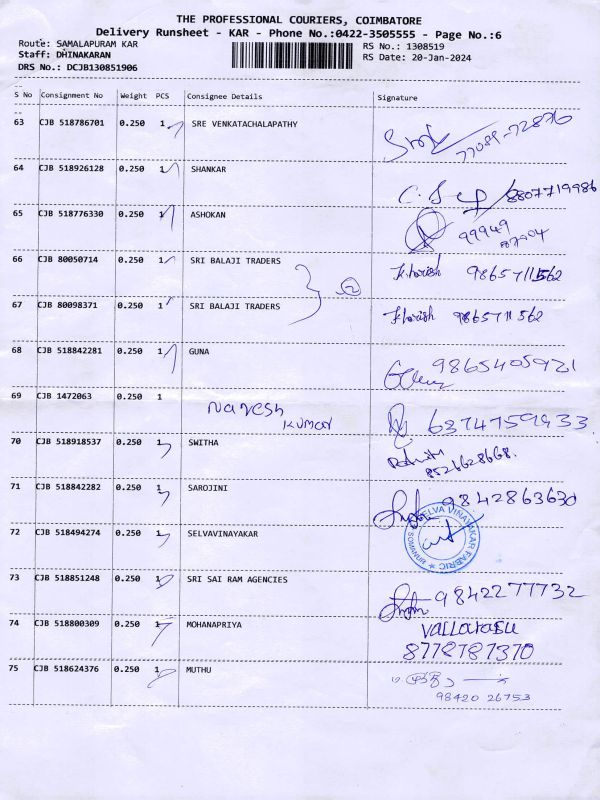 THE PROFESSIONAL COURIERS, COIMBATORE
Delivery Runsheet - KAR - Phone No.:0422-3505555 - Page No.:6
Route: SAMALAPURAM KAR RS No.: 1308519
Staff: DHINAKARAN RS Date: 20-Jan-2024
DRS No.: DCJB130851906
S No Consignment No Weight PCS Consignee Details Signature
63 CJB 518786701 0.250 1 SRE VENKATACHALAPATHY 77089-72876
64 CJB 518926128 0.250 1 SHANKAR 8807719986
65 CJB 518776330 0.250 1 ASHOKAN 99949
87904
66 CJB 80050714 0.250 1 SRI BALAJI TRADERS 9865711562
2
67 CJB 80098371 0.250 1 SRI BALAJI TRADERS 9865711562
68 CJB 518842281 0.250 1 GUNA 9865405921
69 CJB 1472063 0.250 1 Naresh
KUMAR 6374759933
70 CJB 518918537 0.250 1 SWITHA
8526628668.
71 CJB 518842282 0.250 1 SAROJINI 9842863630
72 CJB 518494274 0.250 1 SELVAVINAYAKAR SELVA VINAYAKAR FABRIC SOMANUR
73 CJB 518851248 0.250 1 SRI SAI RAM AGENCIES 9842277732
74 CJB 518800309 0.250 1 MOHANAPRIYA Vallarasu
8778787370
75 CJB 518624376 0.250 1 MUTHU
98420 26753